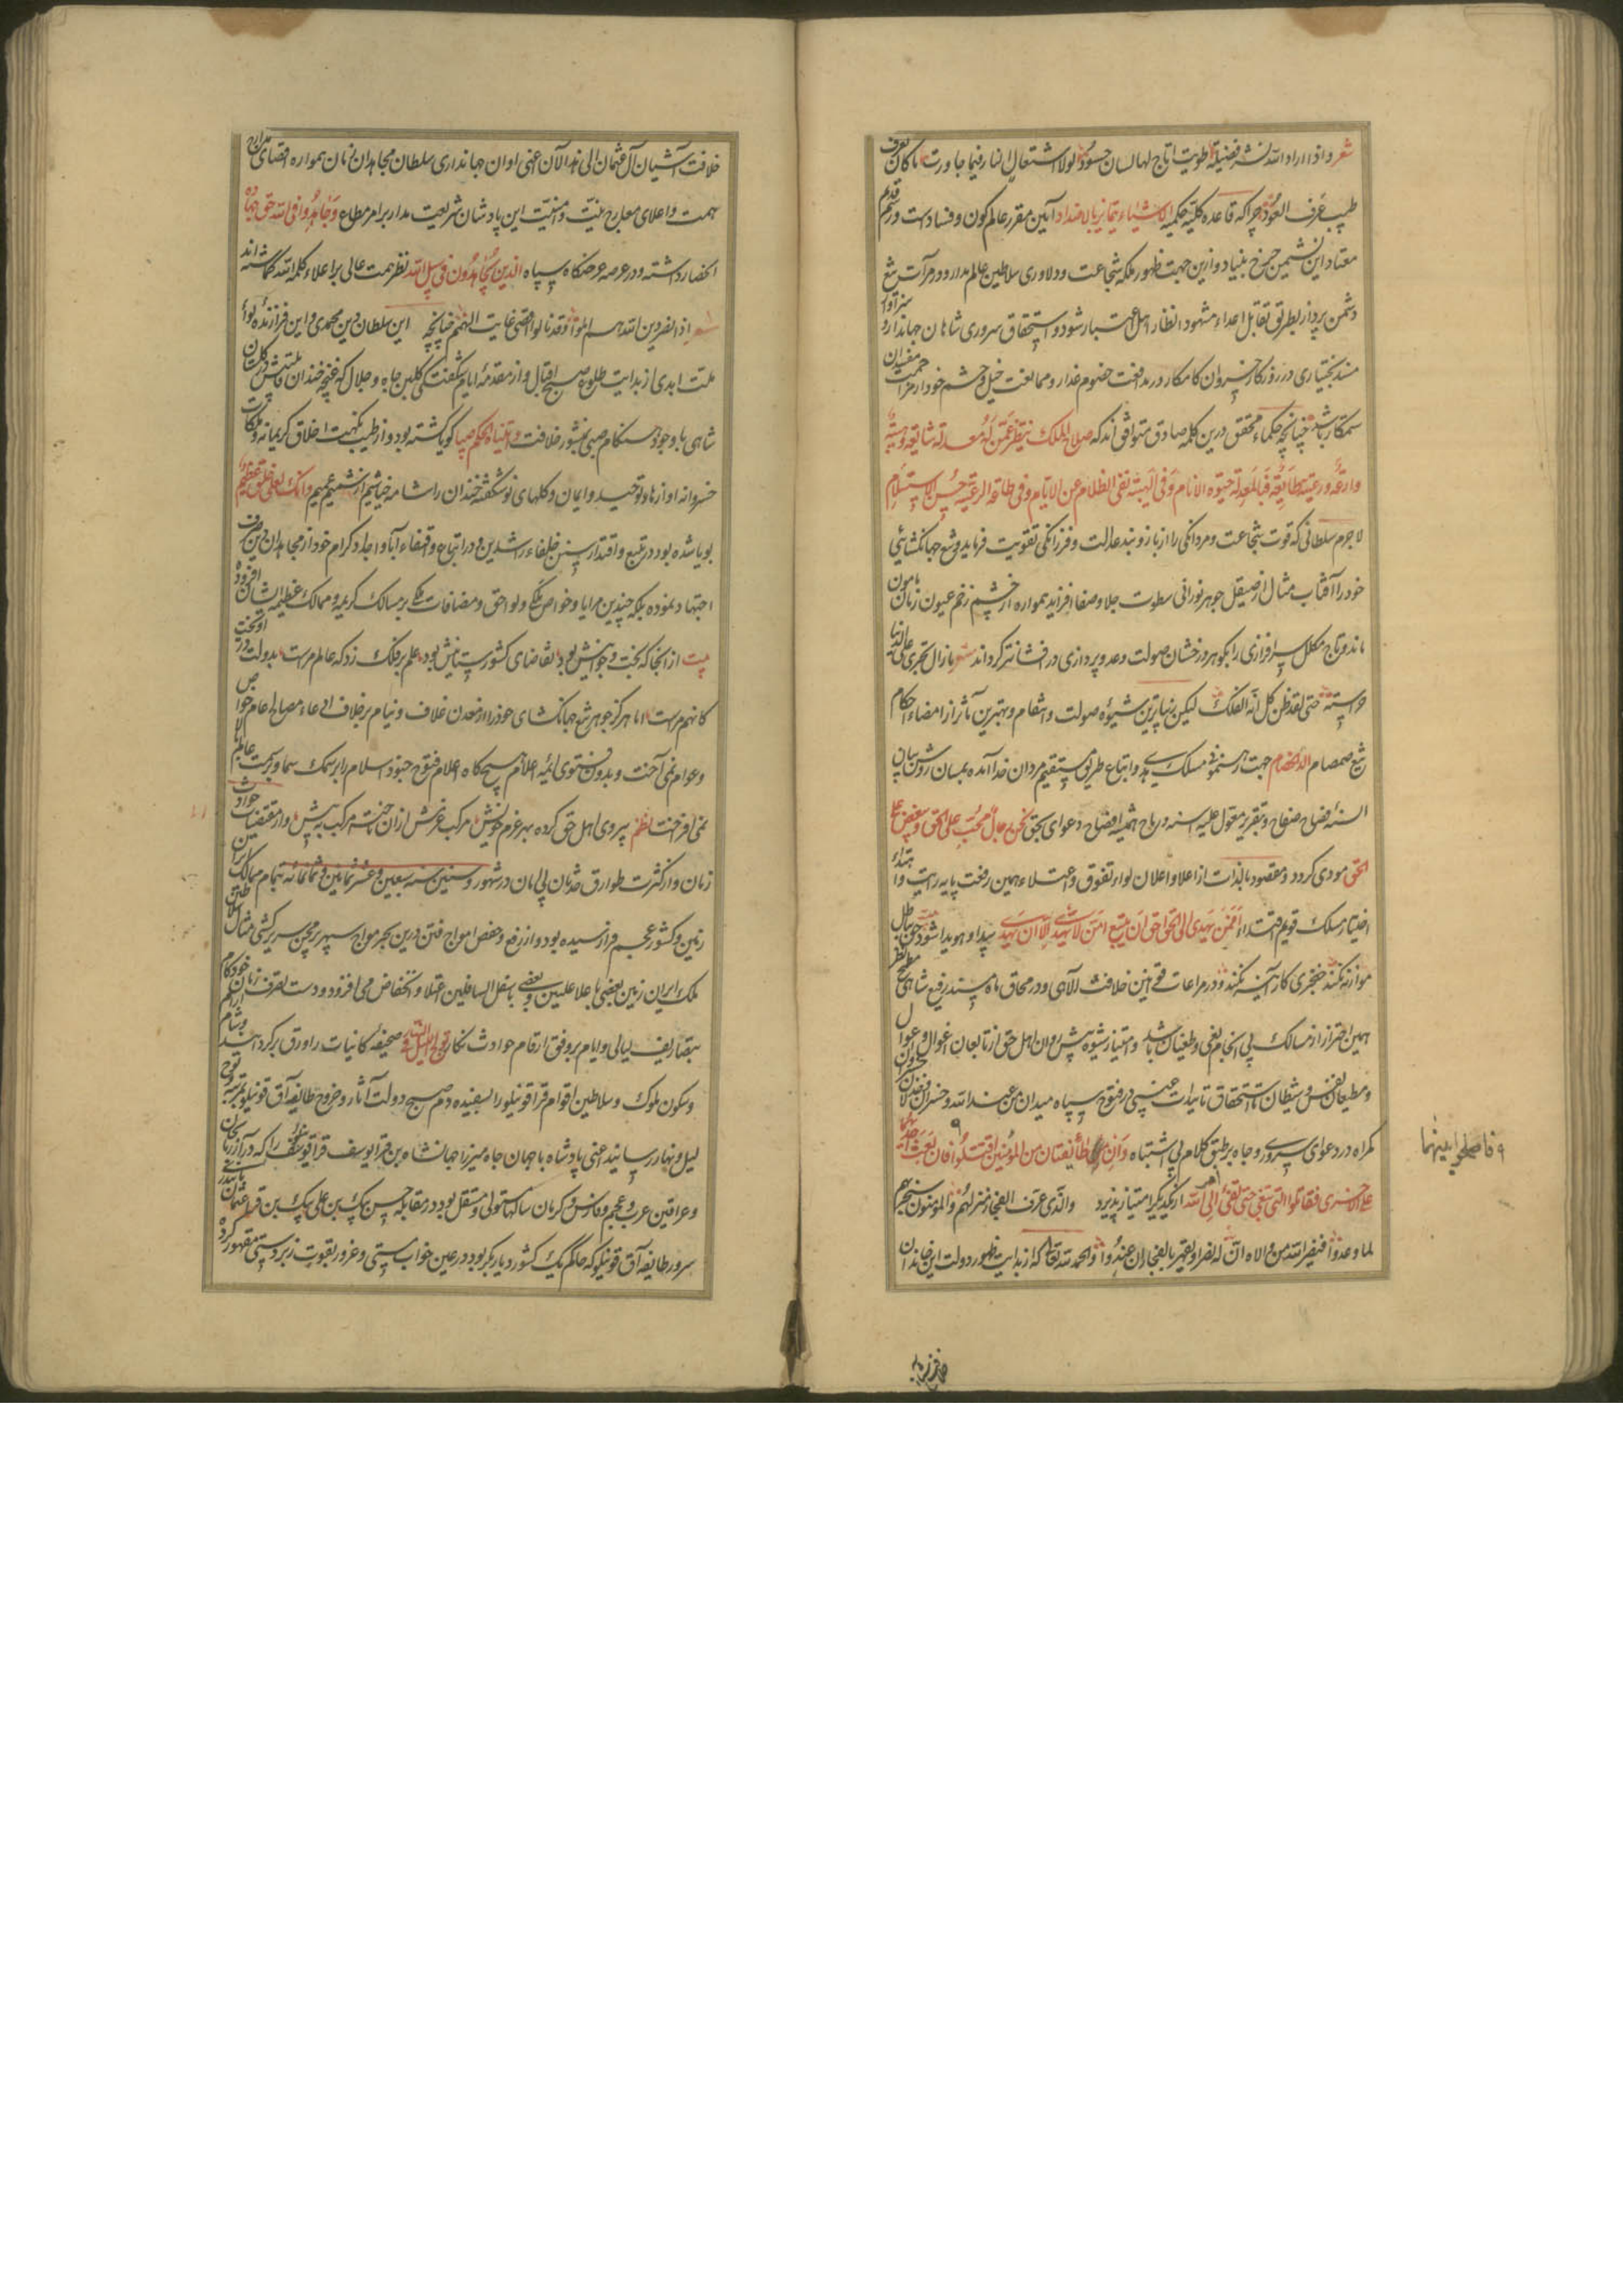 شعر و اذا اراد الله نشر فضیلة طویت اتاح لها لسان حسود لولا اشتعال النار فیما جاورت ما کان یعرف
طیب عرف العود چرا که قاعده کلیه حکمیه الاشیاء یتمایز بالاضداد آیین مقرر عالم کون و فساد است و رسم قدیم
معتاد این نشیمن چرخ بنیاد و ازین جهت ظهور ملکه شجاعت و دلاوری سلاطین عالم مدار و در مرآت تیغ
دشمن پرداز بطریق تقابل اعداء مشهود انظار اهل اعتبار شود و استحقاق سروری شاهان جهاندار و سزاوار
مسند بختیاری در روزکار خسروان کامکار در مدافعت خصوم غدار و ممانعت خیل و حشم خود از مزاحمت مفسدان
ستمکار باشد چنانچه حکماء محقق درین کلمه صادق متوافق اند که صلاح الملک ینظر عمن له معدلة شائعة و هیبة
وازعة و رعیة طایعة فبالمعدلة حیوة الانام و فی الهیبة نفی الظلام عن الایام و فی طاعة الرعیة حسن الاستسلام
لاجرم سلطانی که قوت شجاعت و مردانکی را از بازوبند عدالت و فرزانکی تقویت فرماید و تیغ جهانکشایی
خود را آفتاب مثال از صیقل جوهر نورانی سطوت جلا و صفا افزاید همواره از چشم زخم عیون زمان مامون
ماند و تاج مکلل سرافرازی را بکوهر درخشان صولت و عدو پردازی درفشانتر کرداند شعر مازال تجری علی الدنیا
حراسته حتی لقد ظن کل انه الفلک لیکن زیباترین شیوه صولت و انتقام و بهترین مآثر از امضاء احکام
تیغ صمصام الد الخصام جهت رهنمونی مسلک هدی و اتباع طریق مستقیم مردان خدا آمده بلسان روشن بیان
السنه فصاح صفاح و بتقریر معقول علیه اسنه و رماح همیشه افصاح دعوای بحق نحن رجال نحب علی الحق و نبغض علی
الحق مودی کردد و مقصود بالذات از اعلا و اعلان لواء تفوق و اعتلاء همین رفعت پایه رایت و اهتداء
اختیار مسلک قویم اقتداء افمن یهدی الی الحق احق ان یتبع امن لا یهدی الا ان یهدی پیدا و هویدا شود حق و باطل
موازنه نکند خنجری کار آینه نکند و در مراعات قوانین خلافت الاهی و در محاق ماه مسند رفیع شاهی مطمح نظر
همین احتراز از مسالک بی انجام بغی و طغیان باشد و امتیاز شیوه پیش روان اهل حق از تابعان اغوال و اغوال
و مطیعان نفس و شیطان تا استحقاق تاییدات غیبی در فتوح سپاه میدان من عند الله و خسران و خذلان
کمراه در دعوای سروری و جاه بر طبق کلام بی اشتباه و ان طائفتان من المؤمنین اقتتلوا فان بغت احدیهما
علی الاخری فقاتلوا التی تبغی حتی تفئ الی امر الله از یکدیکر امتیاز پذیرد والذی عرف الفجار منزلهم و المؤمنون سیجزیهم
لما وعدوا فینصر الله من والاه ان له نصرا و یقهر بالفجار ان عندوا و الحمد لله تعالی که از بدایت ظهور دولت این خاندان
۹ فاصلحوا بینهما
خلافت آشیان آل عثمان الی هذا الآن اعنی اوان جهانداری سلطان مجاهدان زمان همواره اقصای مدارج
همت و اعلای معارج نیت و امنیت این پادشان شریعت مدار بر امر مطاع و جاهدوا فی الله حق جهاده
انحصار داشته و در عرصه عرضکاه سپاه الذین یجاهدون فی سبیل الله نظر همت عالی بر اعلاء کلمة الله کماشته اند
شعر اذا نصر دین الله هم الملوا و قد نالوا اقصی غایت الهمم چنانچه این سلطان دین محمدی و این فرازنده لوای
ملت ابدی از بدایت طلوع صبح اقبال و از مقدمه ایام شکفتکی کلبن جاه و جلال که غنچه خندان ملتش در کلستان
شاهی با وجود هنکام صبی منشور خلافت و آتیناه الحکم صبیا کویا کشته بود و از طیب نکهت اخلاق کریمانه و ملکات
خسروانه او ازهار توحید و ایمان و کلهای نو شکفته خندان را شامه خیاشیم از شمیم عمیم و انک لعلی خلق عظیم
بویا شده بود در تتبع و اقتدا بسنن خلفاء راشدین و در اتباع و اقتفاء آبا و اجداد کرام خود از مجاهدان دین صرف
اجتهاد نموده بلکه چندین مزایا و خواص ملکی و لواحق و مضافات ملکی بر مسالک کریمه و ممالک عظیمه ایشان افزوده
بیت از انجا که بخت جوانیش بود تقاضای کشورستانیش بود علم بر فلک زد که عالم مراست بدولت در آویخت
کانهم مراست اما هرکز جوهر تیغ جهانکشای خود را از معدن غلاف و نیام بر خلاف ادعاء مصالح عام خواص
و عوام نمی آخت و بدون فتوی ائمه اعلام هیچکاه اعلام فتوح جنود اسلام را بر سمک سما و برکت
نمی افراخت نظم پیروی اهل حق کرده بهر عزم خویش مرکب عزمش ازان تاخته مرکب به پیش و از مقتضیات حوادث
زمان و از کثرت طوارق حدثان بی امان در شهور و سنین سنه سبعین و عشر ثمانین و ثمانمائه تمام ممالک ایران
زمین و کشور عجم فراز رسیده بود و از رفع و خفض امواج فتن درین بحر مواج سپهر پر محن سریر کشتی مثال سلاطین
ملک ایران زمین بعضی باعلا علیین و بعضی باسفل السافلین اعتلا و انخفاض می افزود و دست تصرف زمان خودکام
بتصاریف لیالی و ایام بر وفق ارقام حوادث نکار تولج اللیل فی النهار صحیفه کاینات را ورق بر کرداند
و سکون ملوک و سلاطین اقوام قراقوینلو را بسفیده دم صبح دولت آثار و خروج طایفه آق قوینلو بمرتبه تولج
لیل و نهار رسانید اعنی پادشاه با همان جاه میرزا جهانشاه بن قرا یوسف قراقوینلو را که در آذربایجان
و عراقین عرب و عجم و فارس و کرمان سالها مستولی و مستقل بود در مقابله حسن بیک بن علی بیک بن قرا عثمان بایندری
سرور طایفه آق قوینلو که حاکم یک کشور دیاربکر بود در عین خواب مستی و غرور بقوت زبردستی مقهور کرد